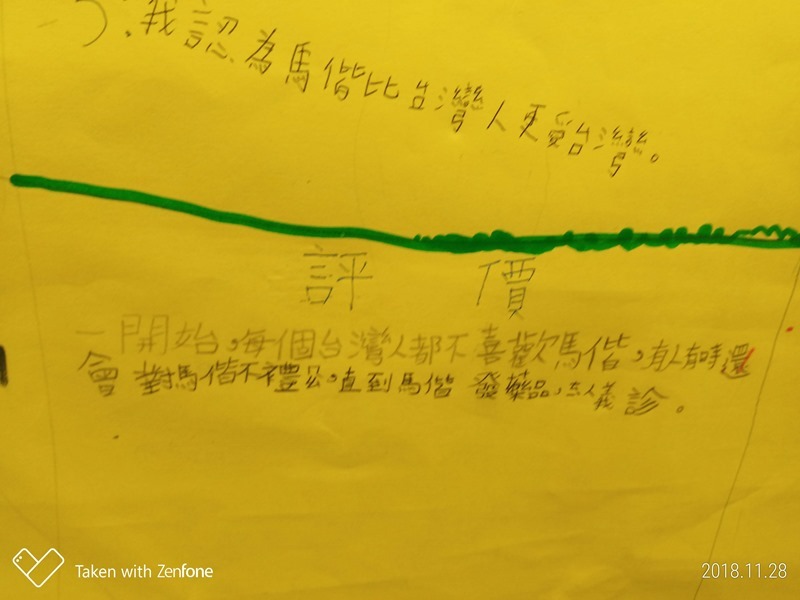 我認為馬偕比台灣人更愛台灣。
評 價
一開始,每個台灣人都不喜歡馬偕,有人有時還
會對馬偕不禮公,直到馬偕發藥品,去人義診。
Taken with Zenfone
2018.11.28